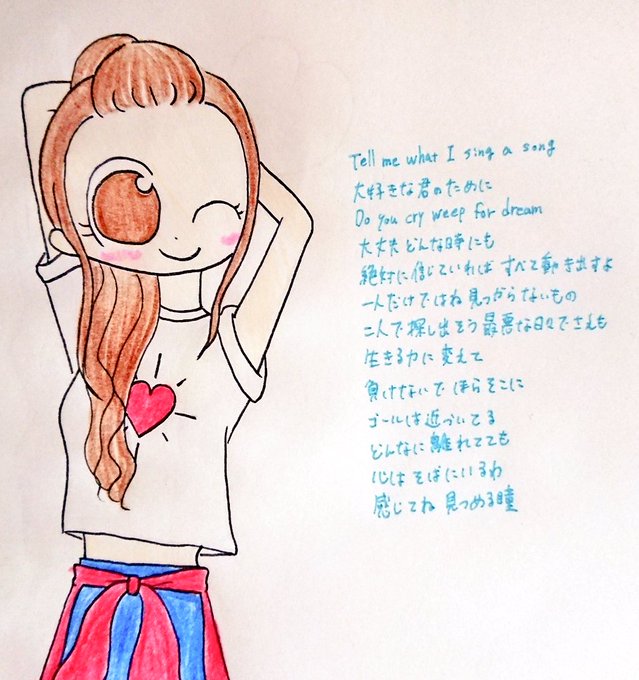 Tell me what I sing a song
大好きな君のために
Do you cry weep for dream
大丈夫どんな時にも
絶対に信じていれば すべて動き出すよ
一人だけではね見つからないもの
二人で探し出そう最悪な日々でさえも
生きる力に変えて
負けないで ほらそこに
ゴールは近づいてる
どんなに離れてても
心は そばにいるわ
感じてね 見つめる瞳